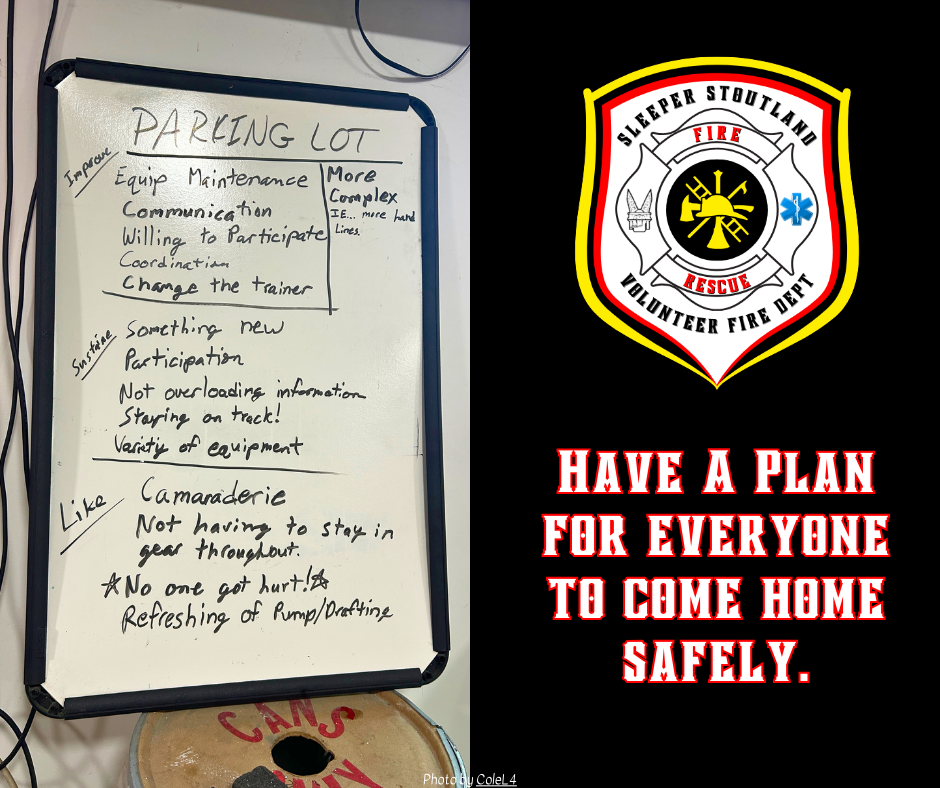 PARKING LOT
Improve
Equip Maintenance
Communication
Willing to Participate
Coordination
Change the trainer
More
Complex
IE... more hand
Lines.
Sustaine
Something new
Participation
Not overloading information
Staying on track!
Variety of equipment
Like
Camaraderie
Not having to stay in
gear throughout.
☆No one got hurt!☆
Refreshing of Pump/Drafting
CANS
ONLY
SLEEPER STOUTLAND
FIRE
RESCUE
VOLUNTEER FIRE DEPT
HAVE A PLAN
FOR EVERYONE
TO COME HOME
SAFELY.
Photo by ColeL4